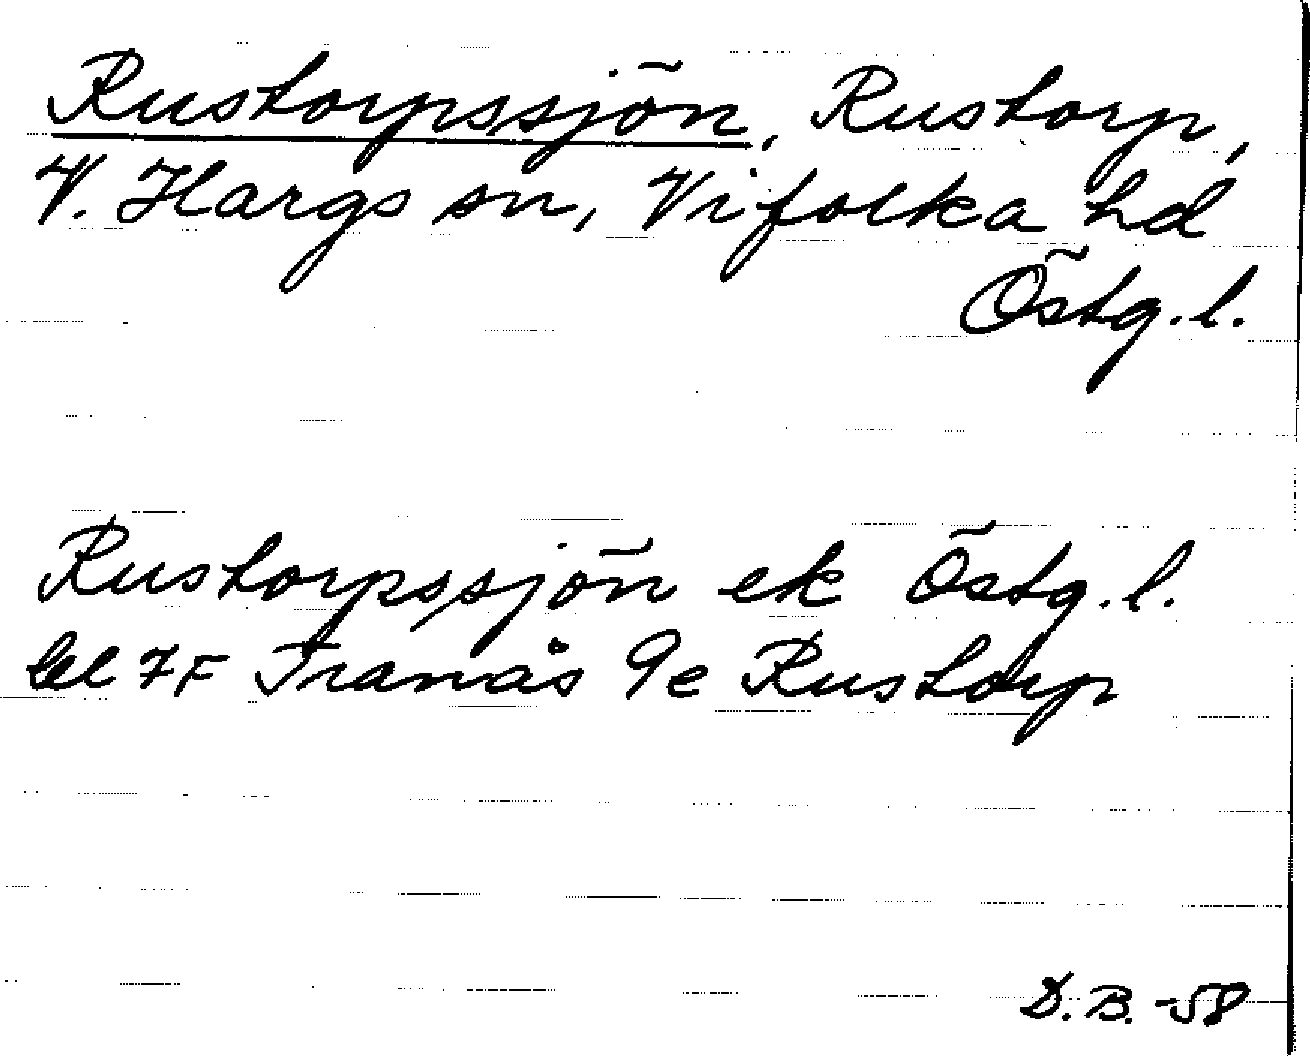 Rustorpssjön, Rustorp,
V. Hargs sn, Vifolka hd
Östg.l.
Rustorpssjön ek Östg.l.
bl 7F Tranås 9e Rustorp
D.B. -58